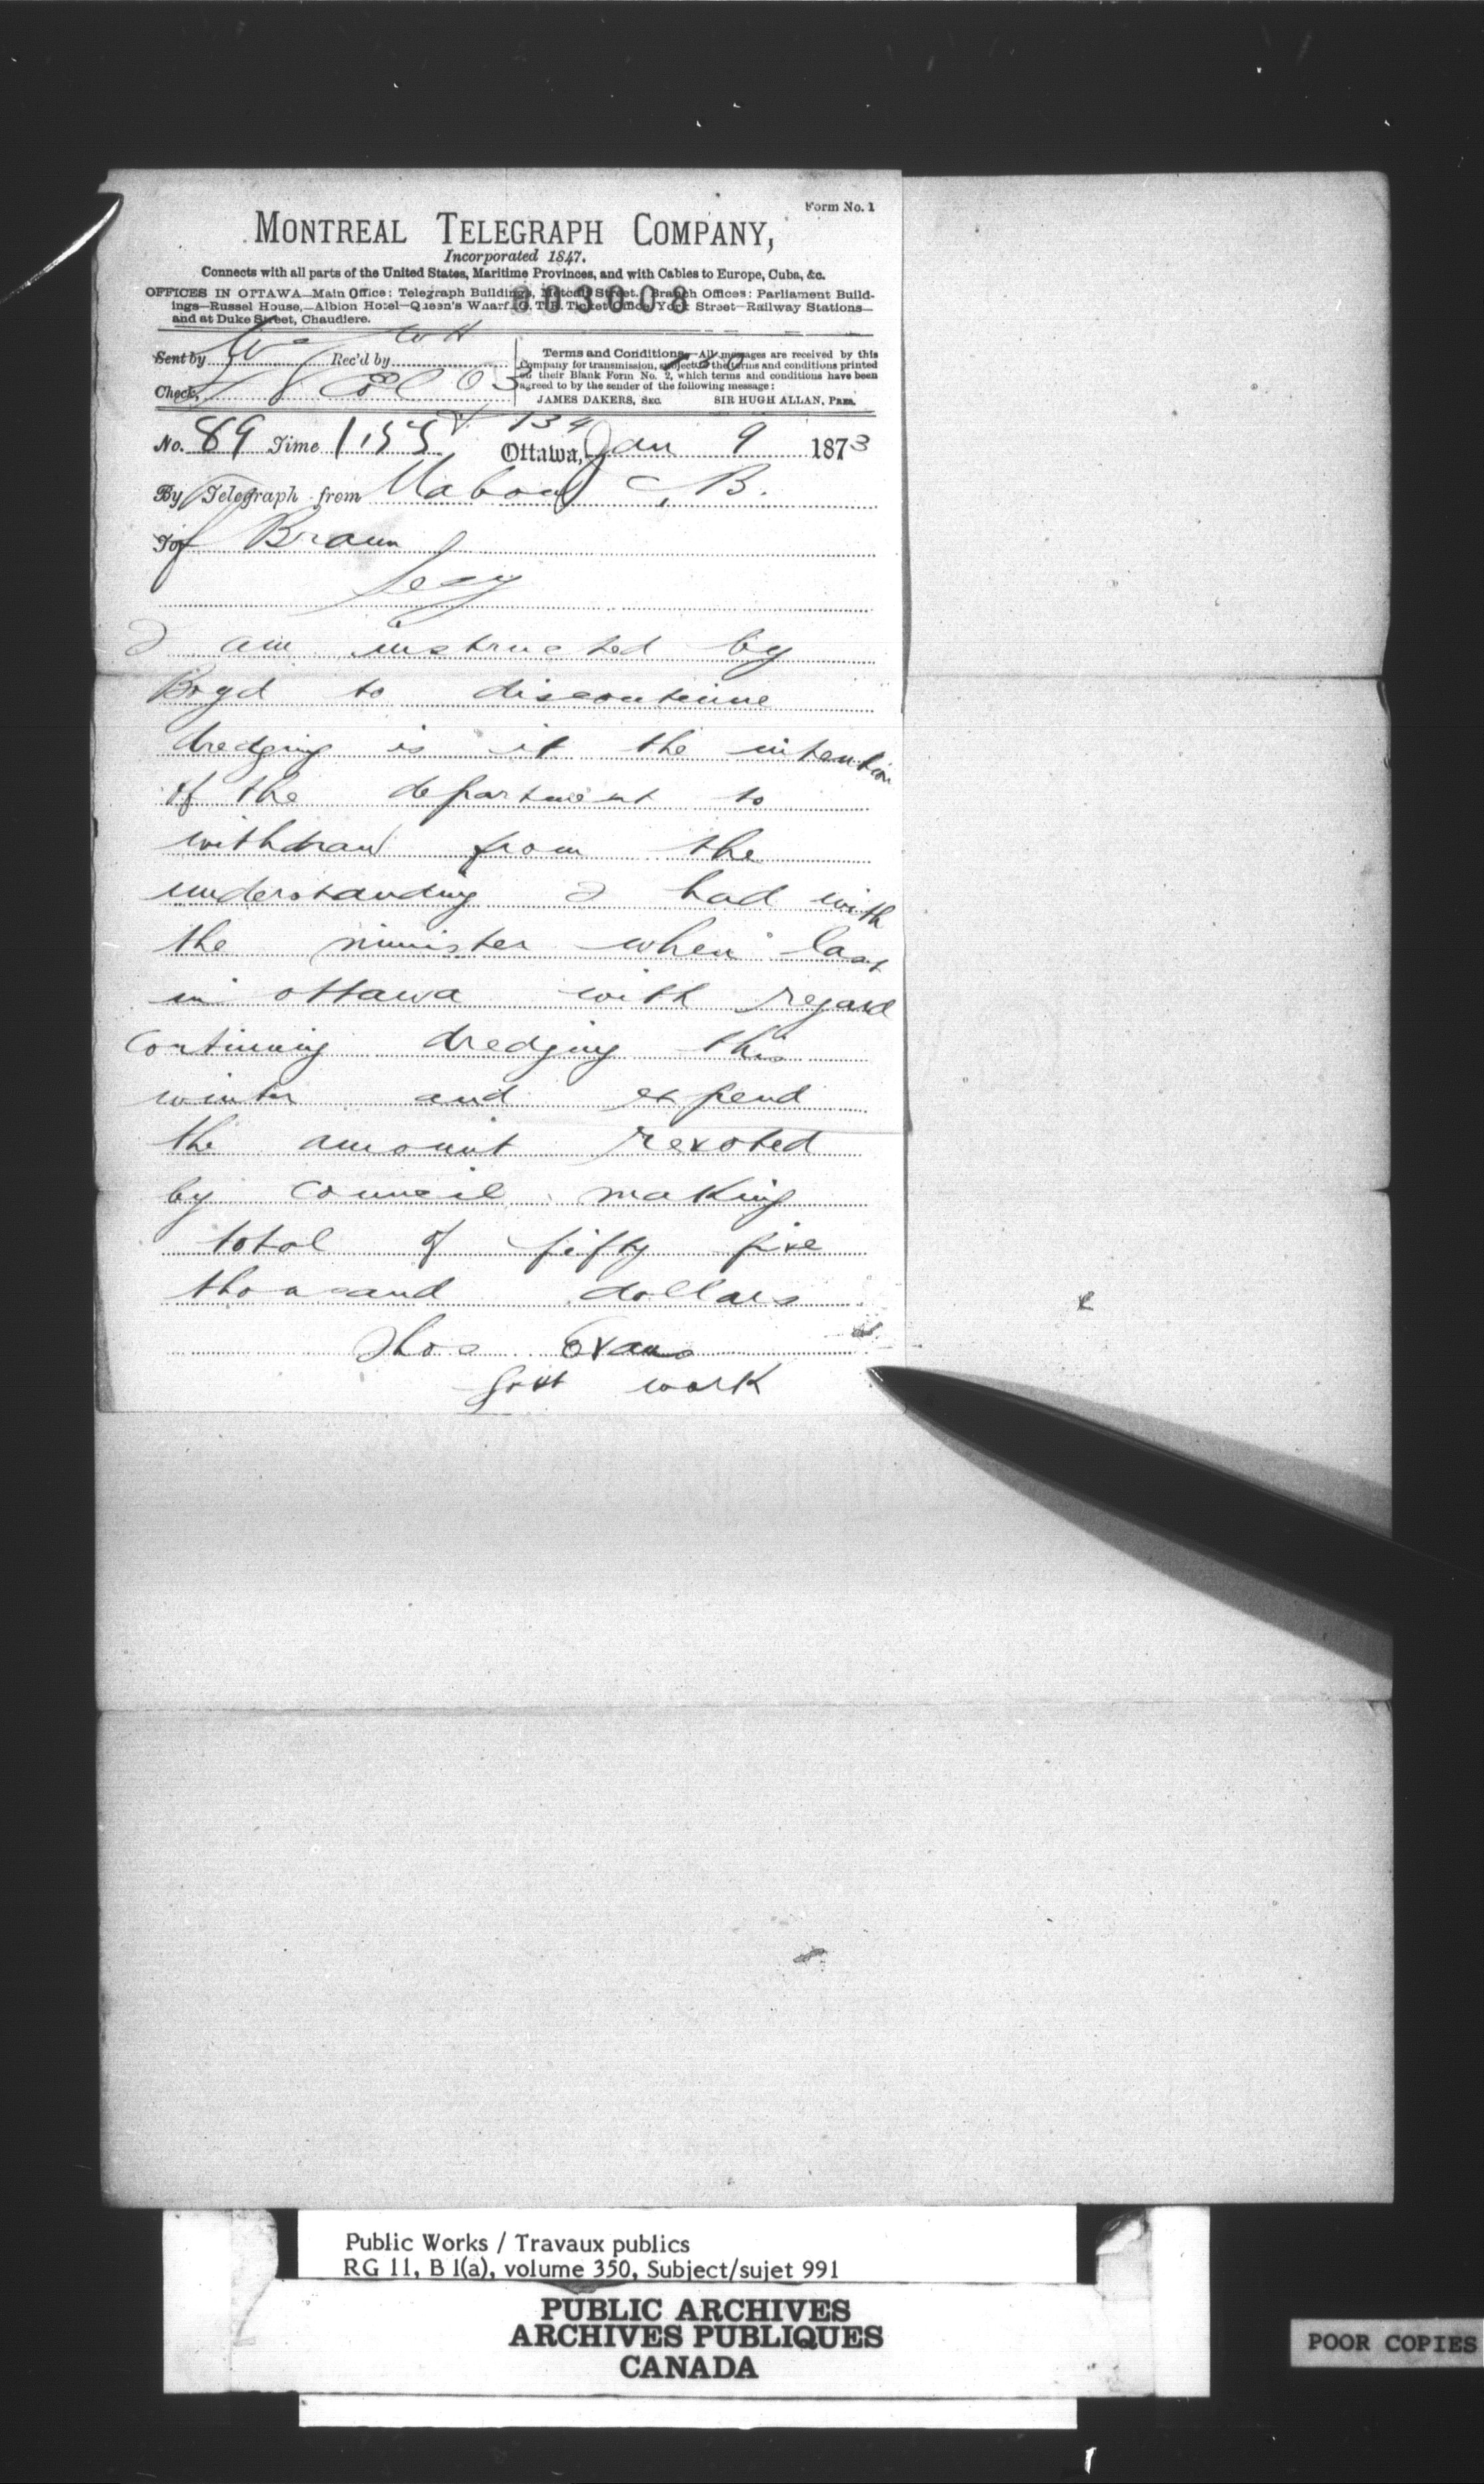 Form No. 1
MONTREAL TELEGRAPH COMPANY,
Incorporated 1847.
Connects with all parts of the United States, Maritime Provinces, and with Cables to Europe, Cuba, &c.
OFFICES IN OTTAWA—Main Office: Telegraph Buildings, Metcalf Street. Branch Offices: Parliament Build-
ings—Russel House,—Albion Hotel—Queen's Wharf G. T. R. Ticket Office, York Street—Railway Stations—
and at Duke Street, Chaudiere.
303008
Sent by Rec'd by
Check,
Terms and Conditions,—All messages are received by this
Company for transmission, subject to the terms and conditions printed
on their Blank Form No. 2, which terms and conditions have been
agreed to by the sender of the following message:
JAMES DAKERS, SEC. SIR HUGH ALLAN, PRES.
134
No. 89 Time 1.55 Ottawa, Jan 9 1873
By Telegraph from Mabou C.B.
To F Braun
Secy
I am instructed by
Boyd to discontinue
dredging is it the intention
of the department to
withdraw from the
understanding I had with
the minister when last
in ottawa with regard
continuing dredging this
winter and expend
the amount revoted
by council making
total of fifty five
thousand dollars
Thos Evans
Govt work
Public Works / Travaux publics
RG 11, B 1(a), volume 350, Subject/sujet 991
PUBLIC ARCHIVES
ARCHIVES PUBLIQUES
CANADA
POOR COPIES